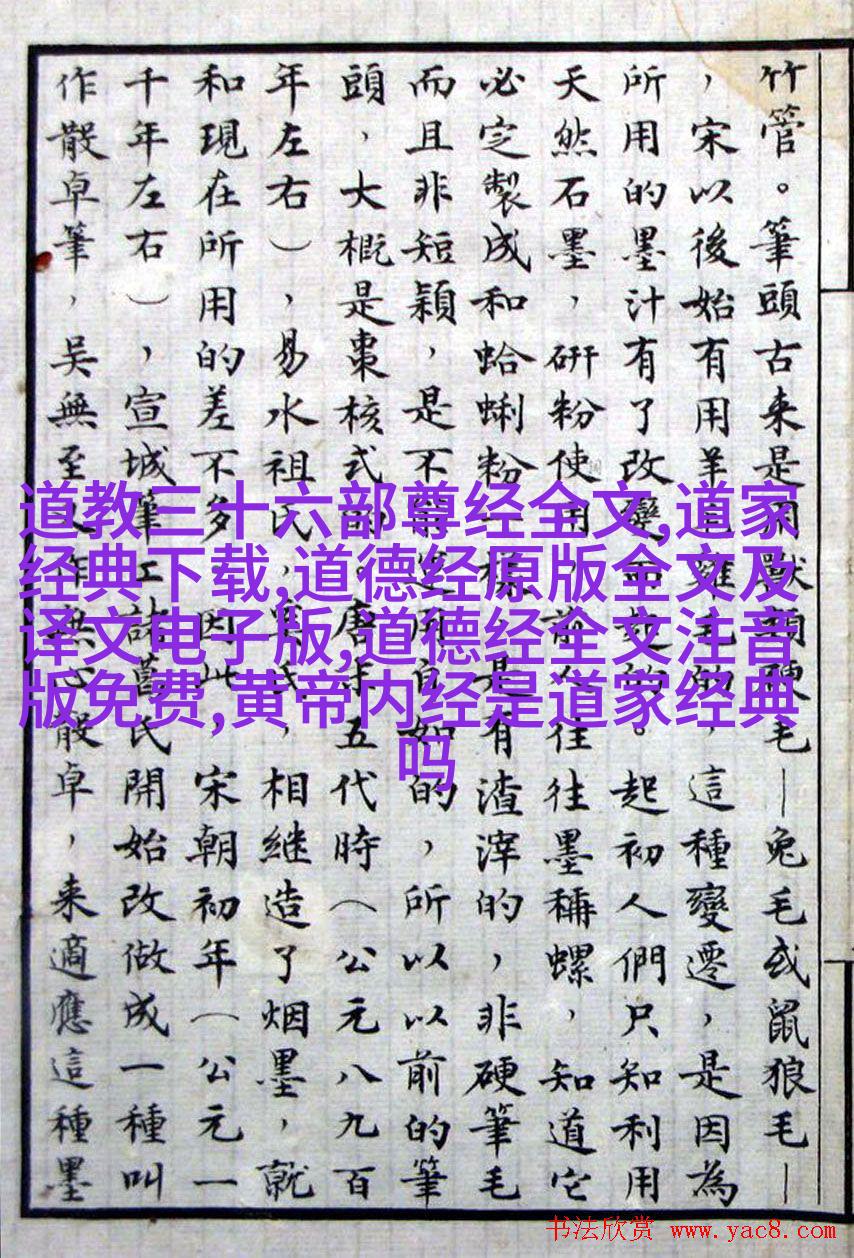 竹管。筆頭古来是用獸類硬毛—兔毛或鼠狼毛—
，宋以後始有用羊毛雞毛的，這種變遷，是因為
所用的墨汁有了改變而致的。起初人們只知利用
天然石墨，研粉使用，前人往往墨稱螺，知道它
必定製成和蛤蜊粉一樣，是有渣滓的，非硬筆毛
而且非短穎，是不
如的，所以以前的筆
頭，大概是棗核式的。唐末五代時（公元八九百
年左右），易水祖氏，奚氏，相継造了烟墨，就
和現在所用的差不多。因此，宋朝初年（公元一
千年左右），宣城筆工諸葛氏開始改做成一種叫
作散卓筆，吳無至又作無心散卓，来適應這種墨
道教三十六部尊经全文,道家
经典下载,道德经原版全文及
译文电子版,道德经全文注音
版免费,黄帝内经是道家经典
吗
书法欣赏 www.yac8.com